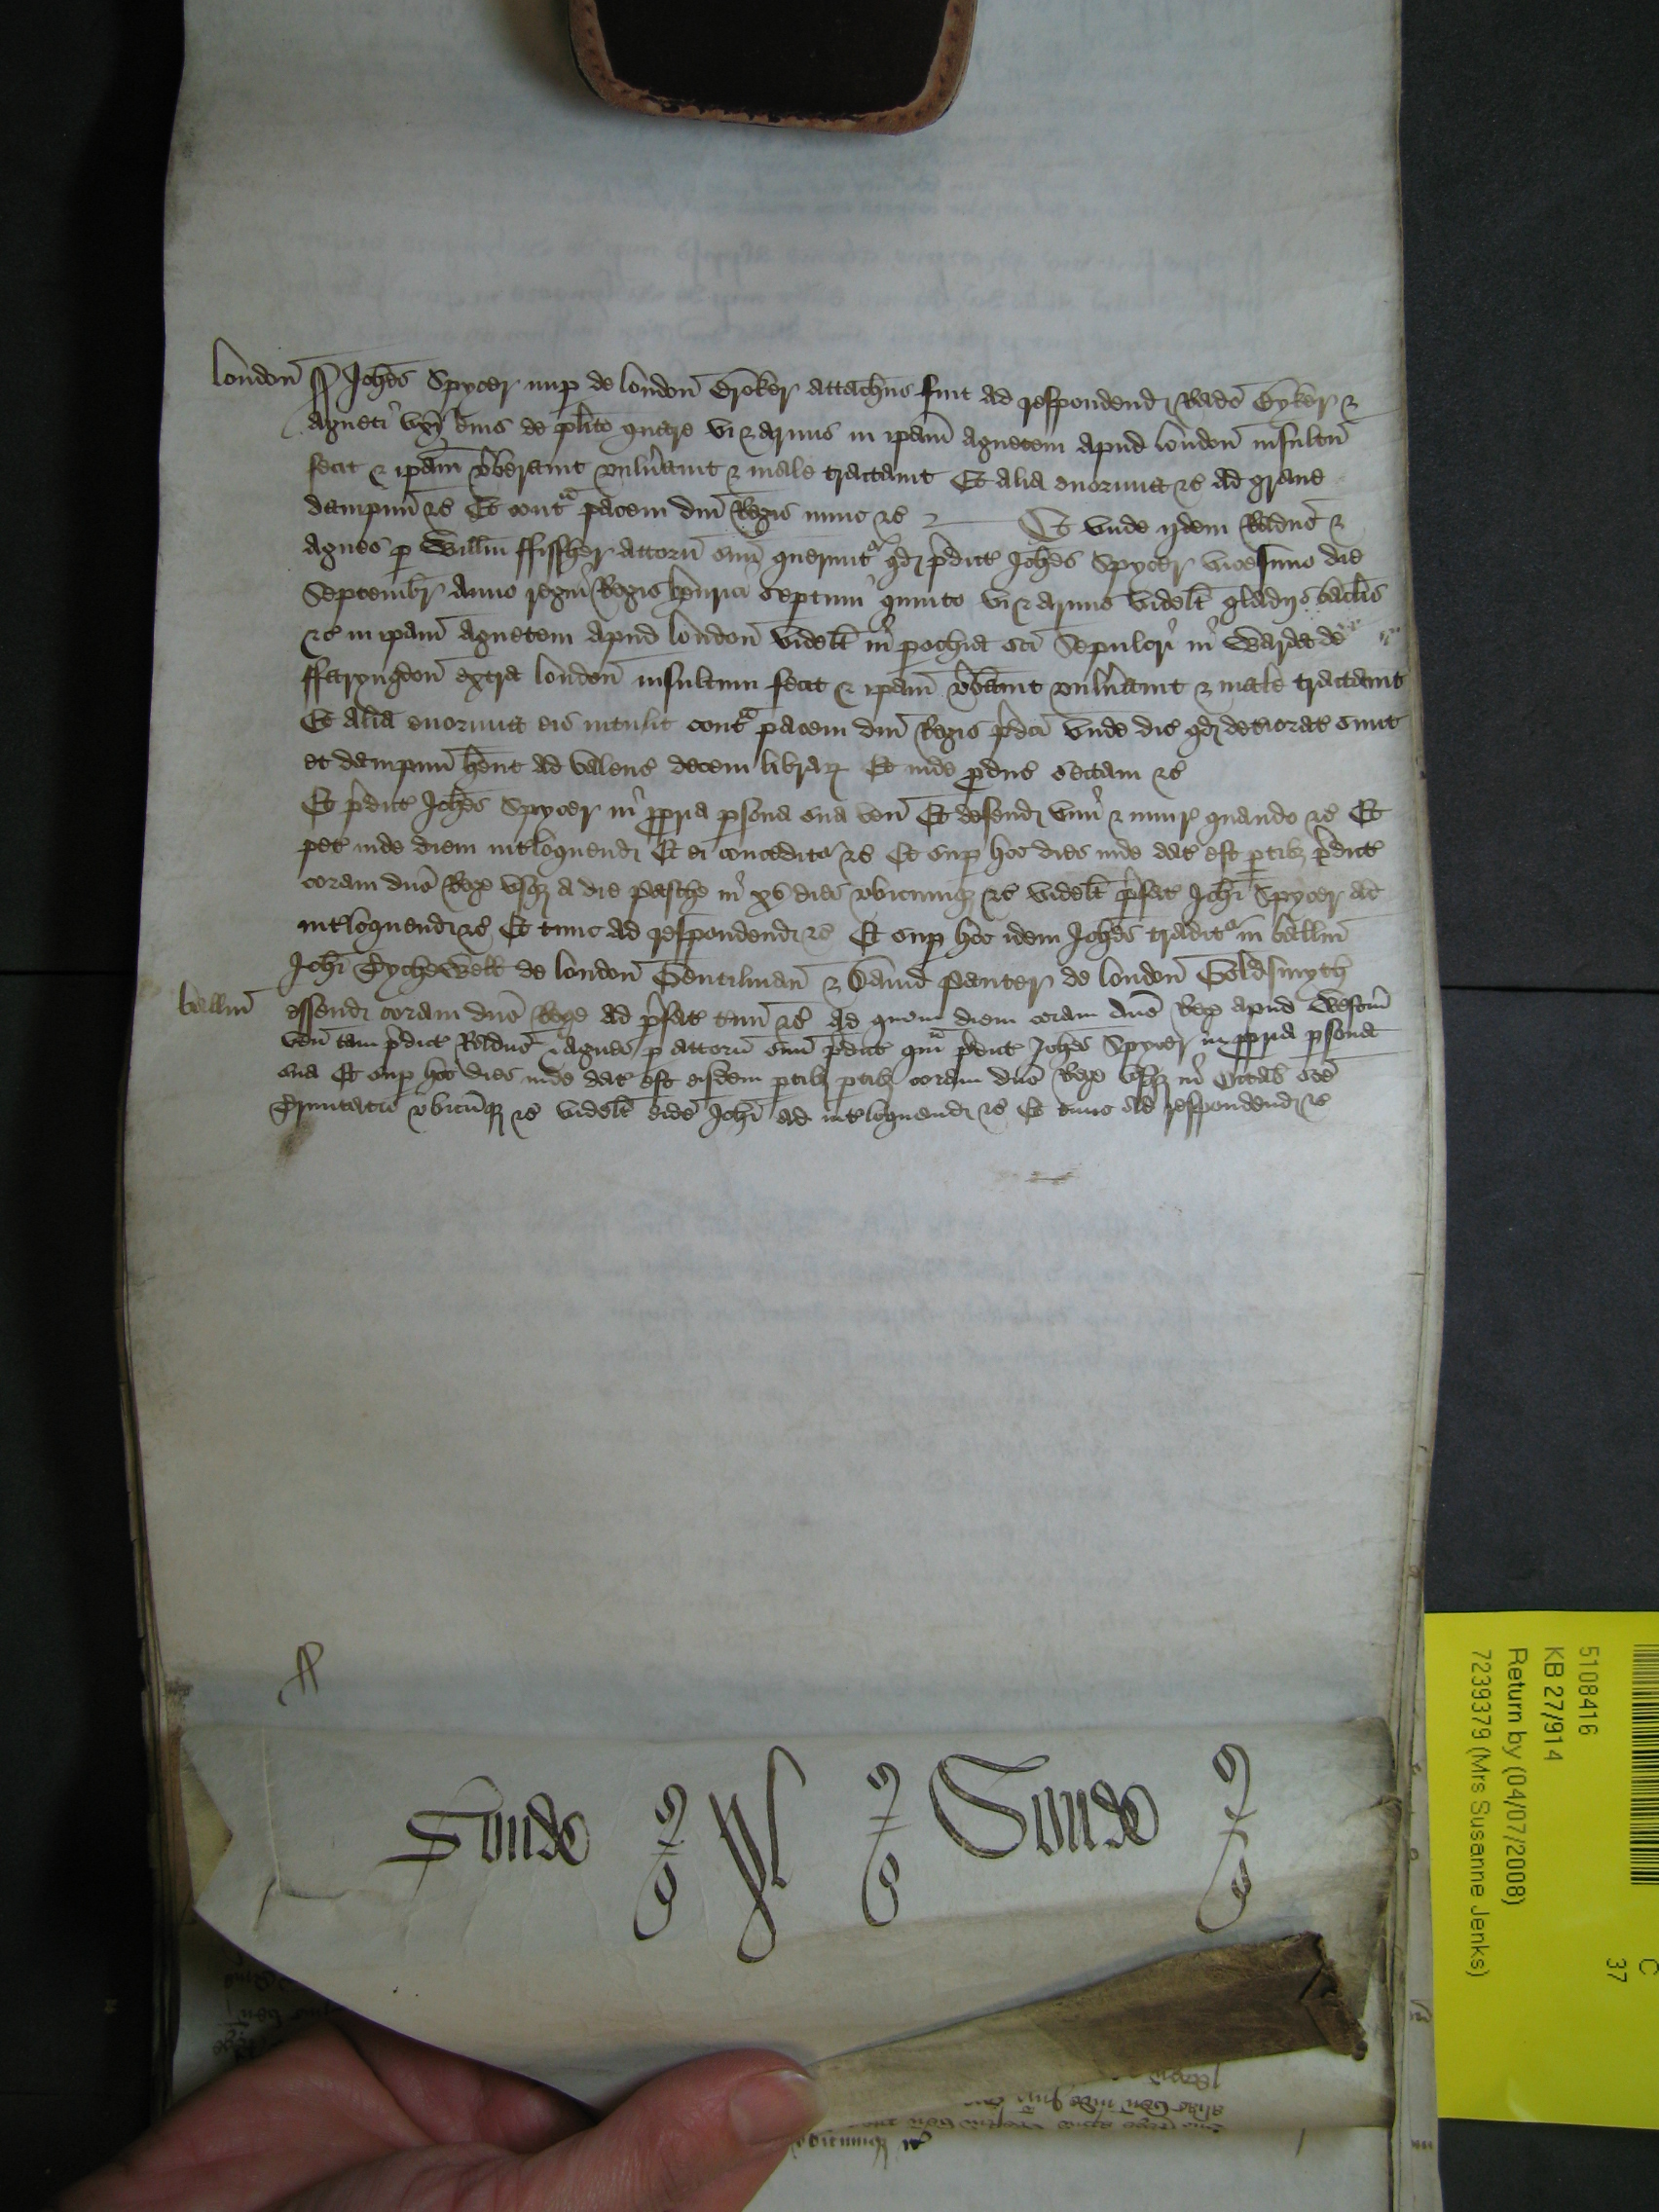 london̄ ss Joħes Spycer nup de london̄ Broker attachus fuit ad respondend Rado Byker &
Agneti vxi eius de plito quare vi & armis in ipam Agnetem apud london̄ insultu
fecit & ipam vberauit vulnauit & male tractauit Et alia enormia &c Ad graue
dampnu &c Et contra pacem dni Regis nunc &c Et vnde ijdem Radus &
Agnes p Willm ffissher attorn suu querunt qd pdict Johes Spycer vicesimo die
Septembr Anno regni Regis henrici septimi quinto vi & armis videlt gladijs baclis
&c in ipam Agnetem apud london̄ videlt in pochia sci Sepulcri in Warda de
ffaryngdon̄ extra london̄ insultum fecit & ipam vbauit vulnauit & male tractauit
Et alia enormia eis intulit contra pacem dni Regis pdci vnde dic qd deteriorat sunt
et dampnu hent ad valenc decem librar Et inde pduc sectam &c
Et pdict Johes Spycer in ppria psona sua ven Et defend vim & iniur quando &c Et
pet inde diem intloquendi Et ei conceditr &c Et sup hoc dies inde dat est ptib pdict
coram dno Rege vsq a die Pasche in xv dies vbicumq &c videlt pfat Johi Spycer ad
intloquend &c Et tunc ad respondend &c Et sup hoc idem Johes traditr in balliu
Johi de london̄ Gentilman & Dauid Panter de london̄ Goldsmyth
balliu essend coram dno Rege ad pfat tmu &c Ad quem diem coram dno Rege apud Westm
ven tam pdict Radus & Agnes p attorn suu pdict qm pdict Johes Spycer in ppria psona
sua Et sup hoc dies inde dat est eisdem ptib ptib coram dno Rege vsq in Octab sce
Trinitatis vbicumq &c videlt eide Johi ad intloquend &c Et tunc ad respondend &c
5108416
KB 27/914
Return by (04/07/2008)
7239379 (Mrs Susanne Jenks)
C
37